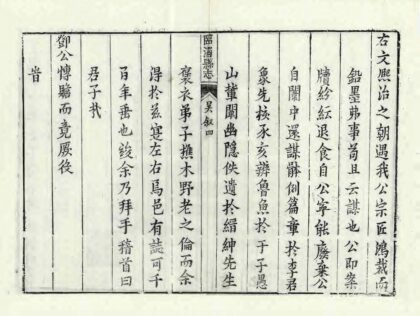 右文熙治之朝遇我公宗匠鴻裁而
鉛墨弗事苟且云謀也公即案
牘紛紜退食自公寧能廢棄公
自闈中還謀例篇章於李君
象先核豕亥辨魯魚於于子愚
臨淄縣志 吳敘四
山輩闡幽隱俠遺於縉紳先生
褒衣弟子樵木野老之倫而余
得於茲寔左右焉邑有誌可千
百年垂也竣余乃拜手稽首曰
君子哉
鄧公博贍而竟厥後
昔